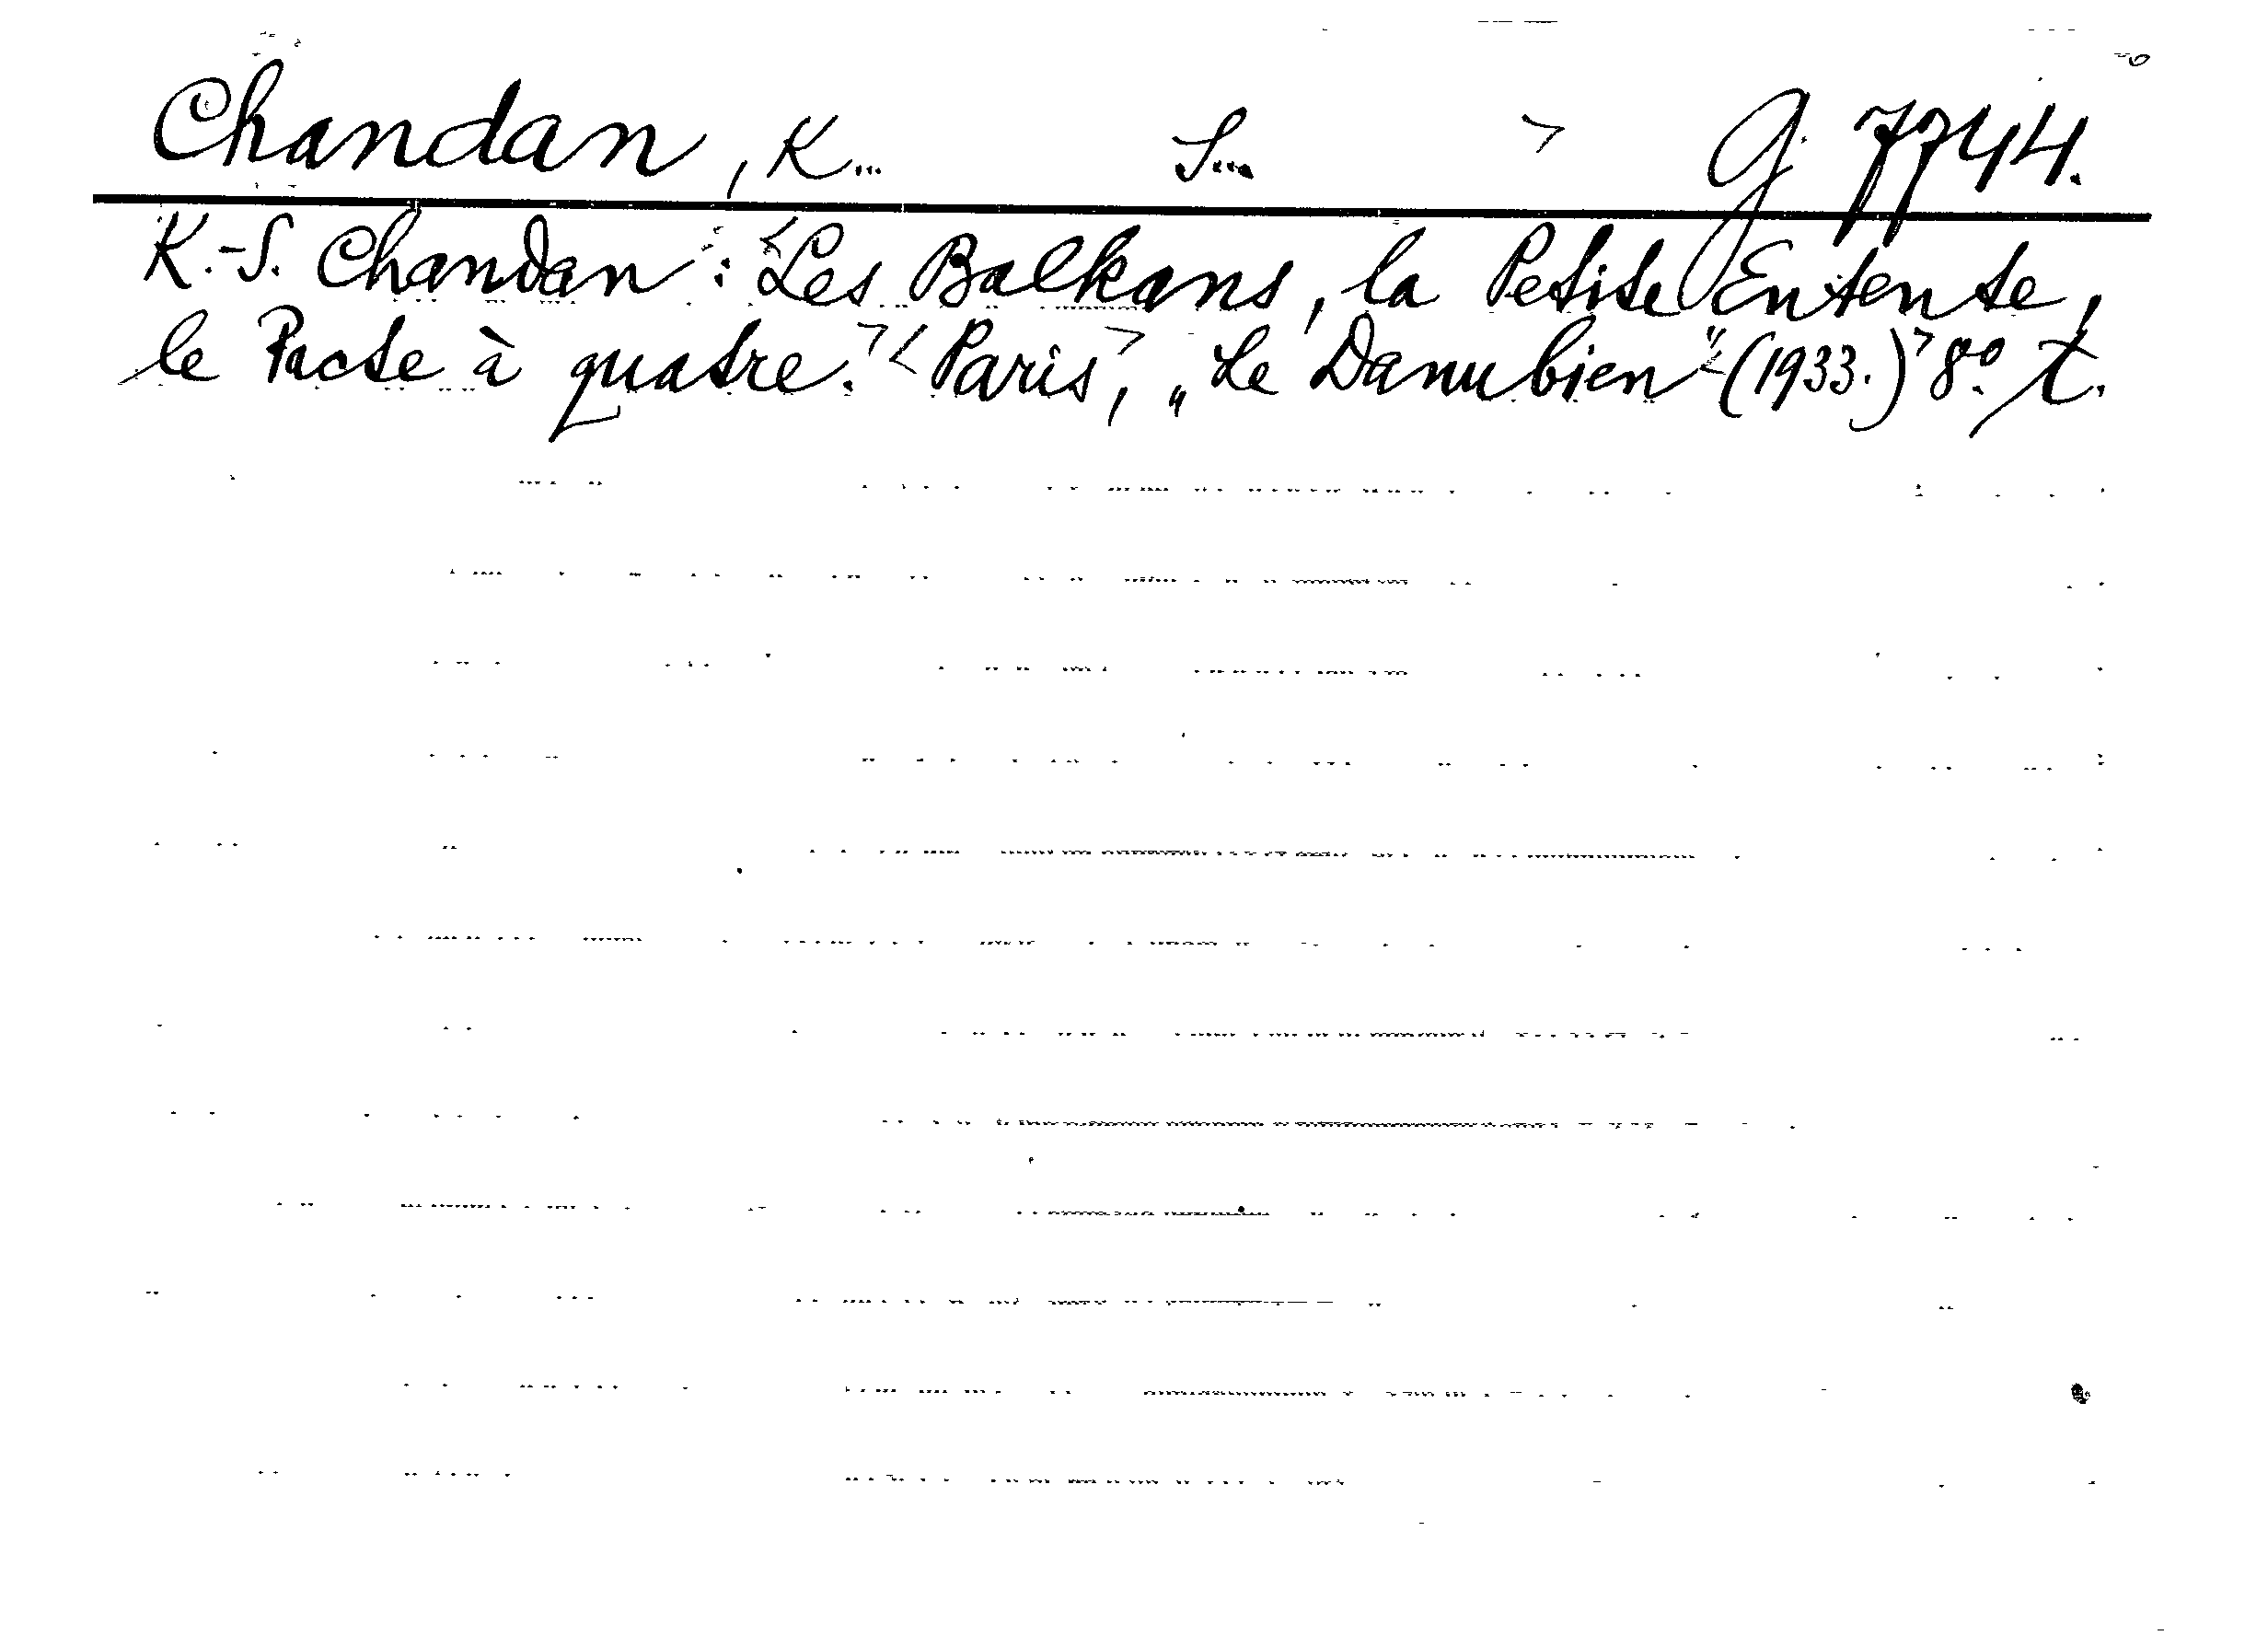 Chandan, K... S... > G 7744.
K.-S. Chandan: <Les Balkans, la Petite Entente,
le Pacte à quatre.> <Paris>, „Le Danubien" <(1933.)> 8º. t.